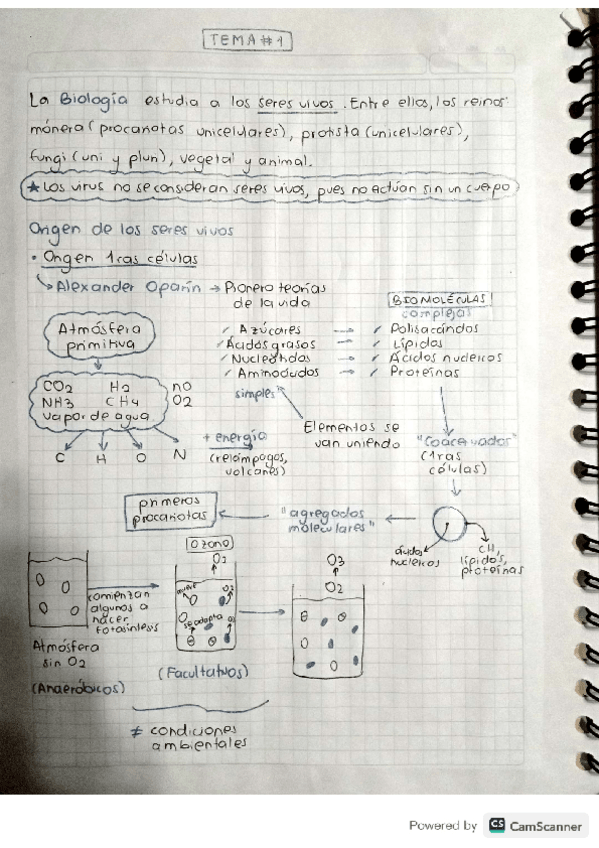 TEMA #1
La Biología estudia a los seres vivos. Entre ellos, los reinos
mónera (procariotas unicelulares), protista (unicelulares),
fungi (uni y pluri), vegetal y animal.
★ Los virus no se consideran seres vivos, pues no actúan sin un cuerpo
Origen de los seres vivos
• Origen 1ras células
Alexander Oparin → Pionero teorías
de la vida
BIOMOLÉCULAS
complejas
Atmósfera
primitiva
✓ Azúcares → ✓ Polisacáridos
✓ Ácidos grasos → ✓ Lípidos
✓ Nucleótidos → ✓ Ácidos nucleicos
✓ Aminoácidos → ✓ Proteínas
simples
CO2 H2
NH3 CH4
vapor de agua
no
O2
C H O N
+ energía
(relámpagos,
volcanes)
Elementos se
van uniendo
"Coacervados"
(1ras
células)
primeros
procariotas
"agregados
moleculares"
ácidos
nucleicos
CH,
lípidos,
proteínas
Ozono
O2
O3
O2
comienzan
algunos a
hacer
fotosíntesis
muere
O2
se adapta
Atmósfera
sin O2
(Anaeróbicos)
(Facultativos)
≠ condiciones
ambientales
Powered by CS CamScanner